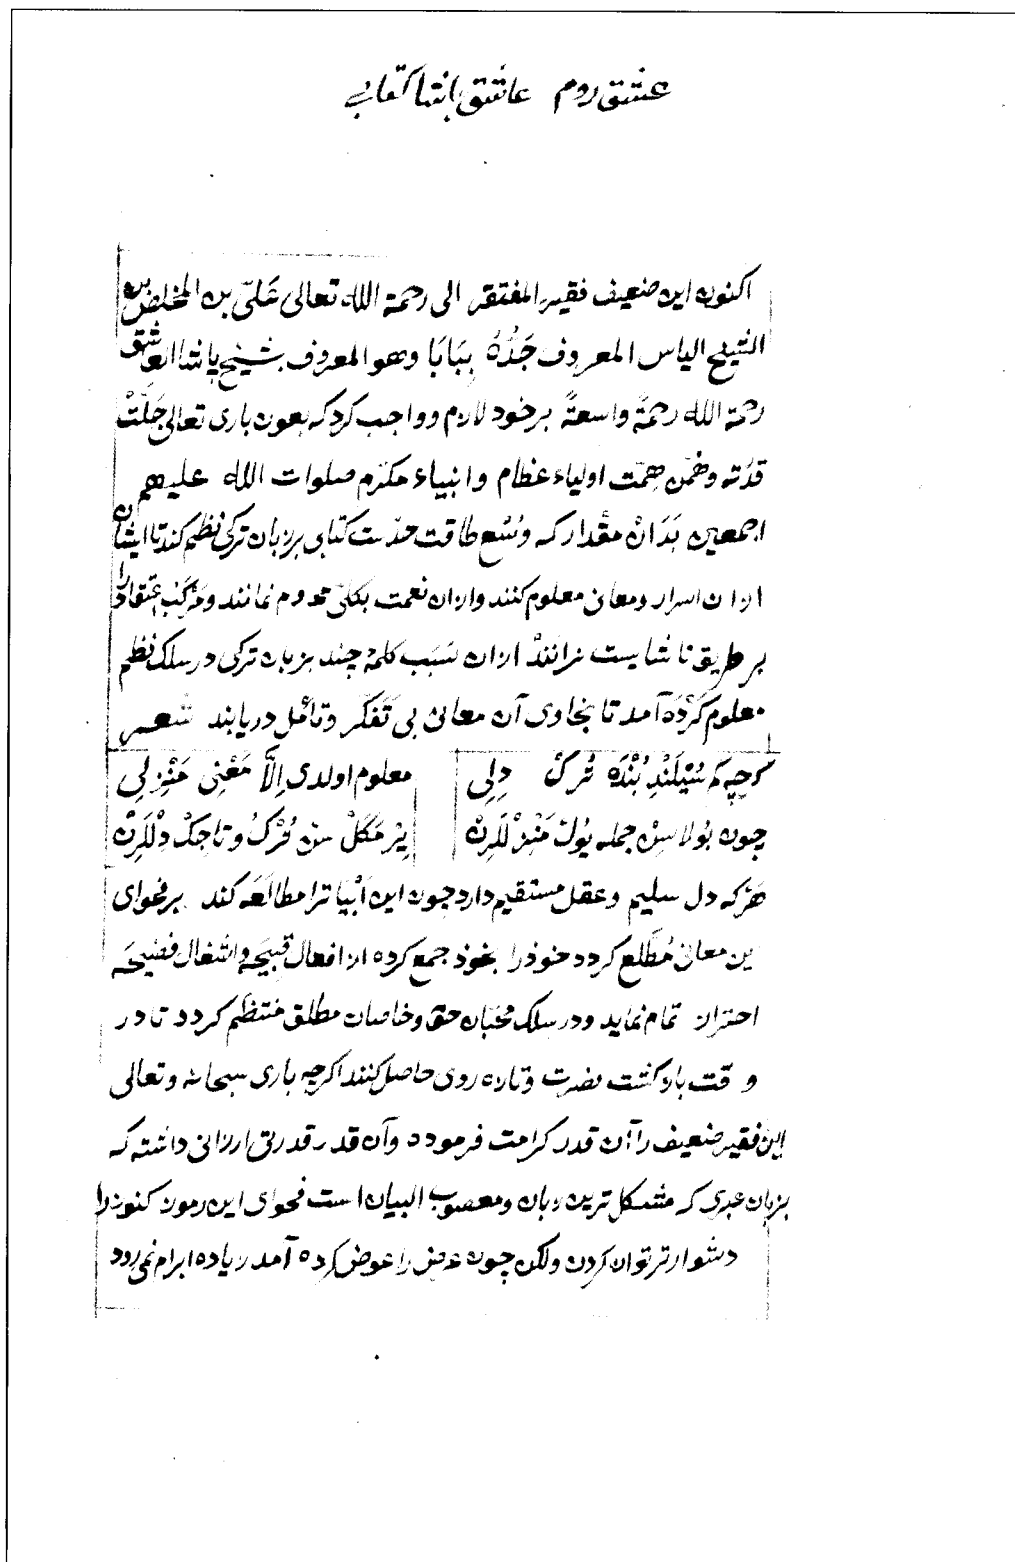 عشق روم عاشق پاشا کتابی
اکنون این ضعیف فقیر المفتقر الی رحمة الله تعالی عَلیّ بن المخلص بن
الشیخ الیاس المعروف جَدُّهُ بِبَابَا وهو المعروف بشیخ پاشا العاشق
رحمة الله رحمةً واسعةً بر خود لازم و واجب کرد که بعون باری تعالی جَلَّتْ
قدرته و همّت اولیاء عظام و انبیاء مکرّم صلوات الله علیهم
اجمعین بَدَانْ مقدار که وُسْع طاقت کتابی بر زبان ترکی نظم کند تا ایشان
از ان اسرار و معانی معلوم کنند و از ان نعمت بکلّی محروم نمانند و مرکب اعتقاد را
بر طریق ناشایست نرانند از ان سَبَب کلمهٔ چند بزبان ترکی در سلک نظم
معلوم کَرْدَه آمد تا بفحاوی آن معانی بی تَفَکّر و تامّل دریابند شعر
کرچه کم سُیْلَنْدِ بُنْدَه تُرکْ دِلِی معلوم اولدی اِلاَّ مَعْنِی مَنْزِلِی
چون بُولاسِنْ جمله یُولْ مَنْزِلْلَرِنْ یِرْمَکِلْ سن تُرْکُ و تاجِکْ دِلْلَرِنْ
هَرْکه دل سلیم و عقل مستقیم دارد چون این اَبْیاترا مطالَعَه کند بر فحوای
ین معانی مُطَّلع کردد خودرا بخود جمع کرده از افعال قبیحَه و اشغال فضیحَه
احتراز تمام نماید و در سلک محبّان حق و خاصان مطلق مُنتظم کردد تا در
وقت بازکشت نضرت و تازه روی حاصل کنند اکرچه باری سبحانه وتعالی
این فقیر ضعیف را آن قدر کرامت فرموده و آن قدر قدرتی ارزانی داشته که
بزبان عبری که مشکل ترین زبان و معصوب البیان است فحوای این رموز کنوز را
دشوارتر توان کردن ولکن چون را عوض کرده آمد زیاده ابرام نمی رود